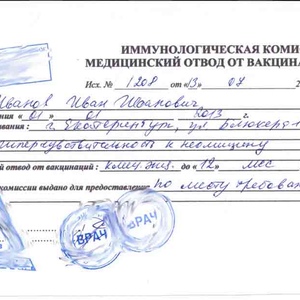 ИММУНОЛОГИЧЕСКАЯ КОМИ
МЕДИЦИНСКИЙ ОТВОД ОТ ВАКЦИНА
Исх. № 1208 от «13» 07 2
Иванов Иван Иванович,
ния «01» 01 2013 г.
вания : г. Екатеринбург, ул Блюхера
гиперчувствительность к неомицину
й отвод от вакцинаций : до «12» мес
комиссии выдано для предоставление по месту требован
ВРАЧ
ВРАЧ